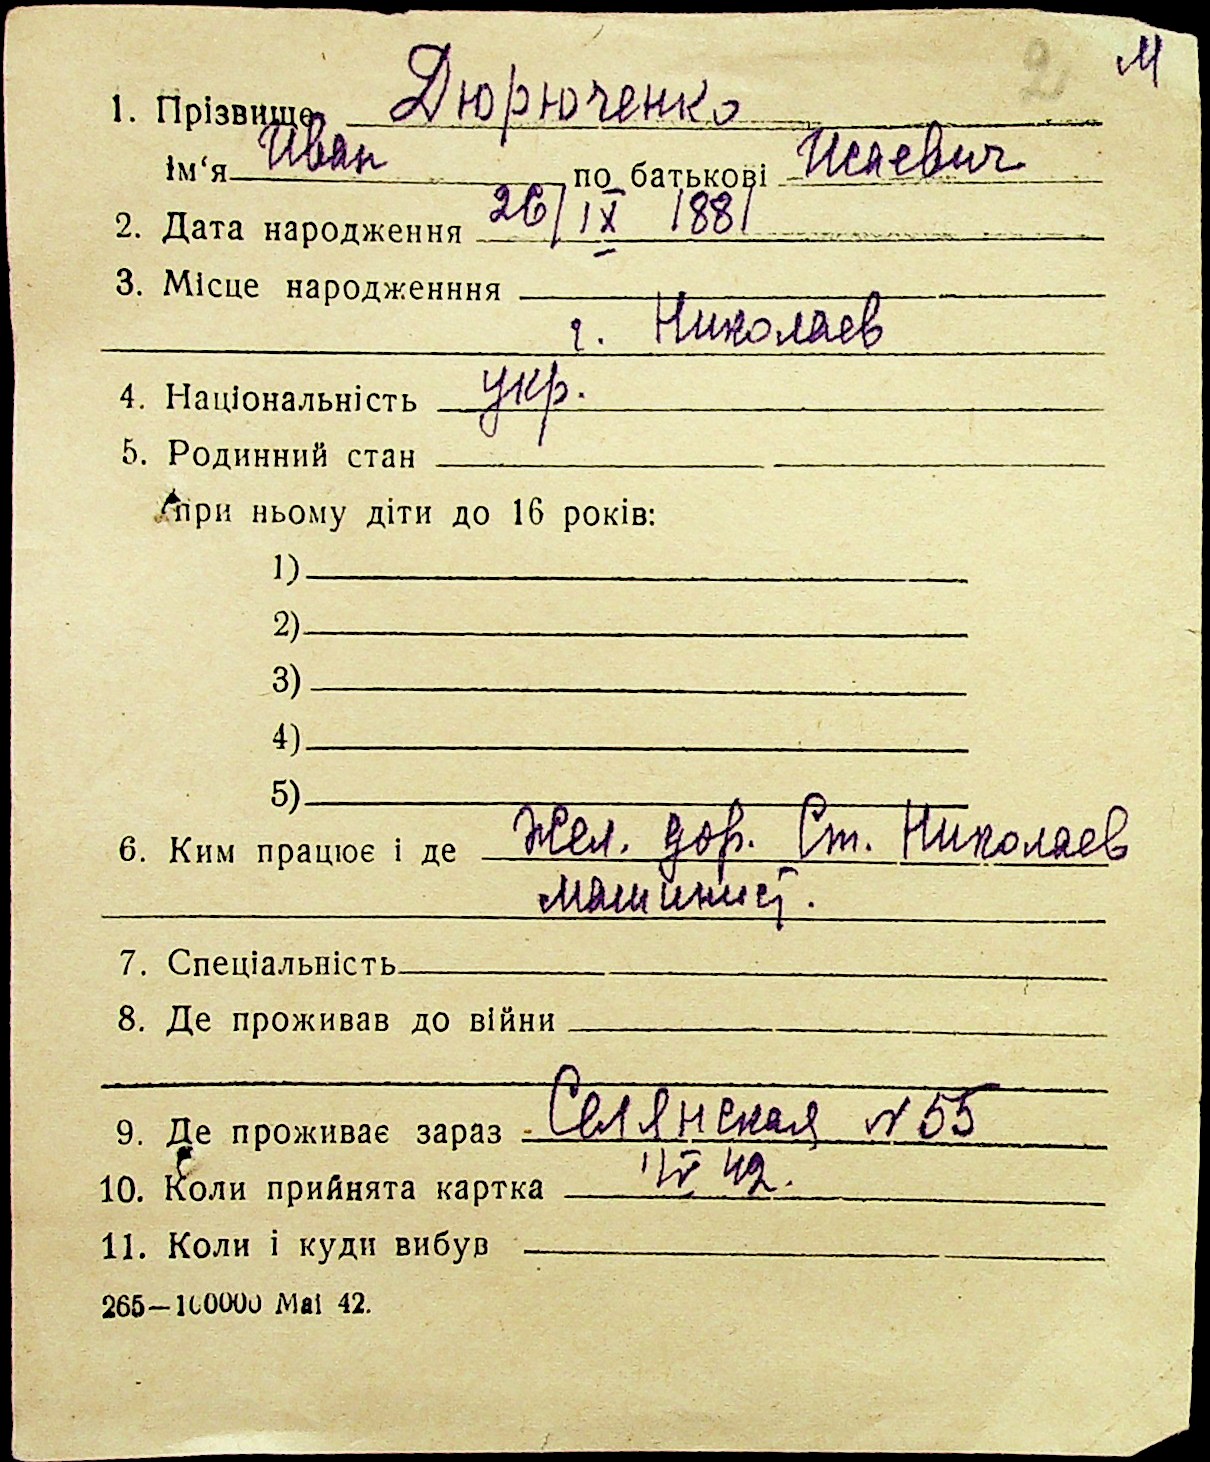 2 М
1. Прізвище Дюрюченко
Ім‘я Иван по батькові Исаевич
2. Дата народження 26/IX 1881
3. Місце народженння
г. Николаев
4. Національність укр.
5. Родинний стан
при ньому діти до 16 років:
1)
2)
3)
4)
5)
6. Ким працює і де Жел. дор. Ст. Николаев
машинист.
7. Спеціальність
8. Де проживав до війни
9. Де проживає зараз Селянская N 55
10. Коли прийнята картка 42.
11. Коли і куди вибув
265—100000 Маі 42.